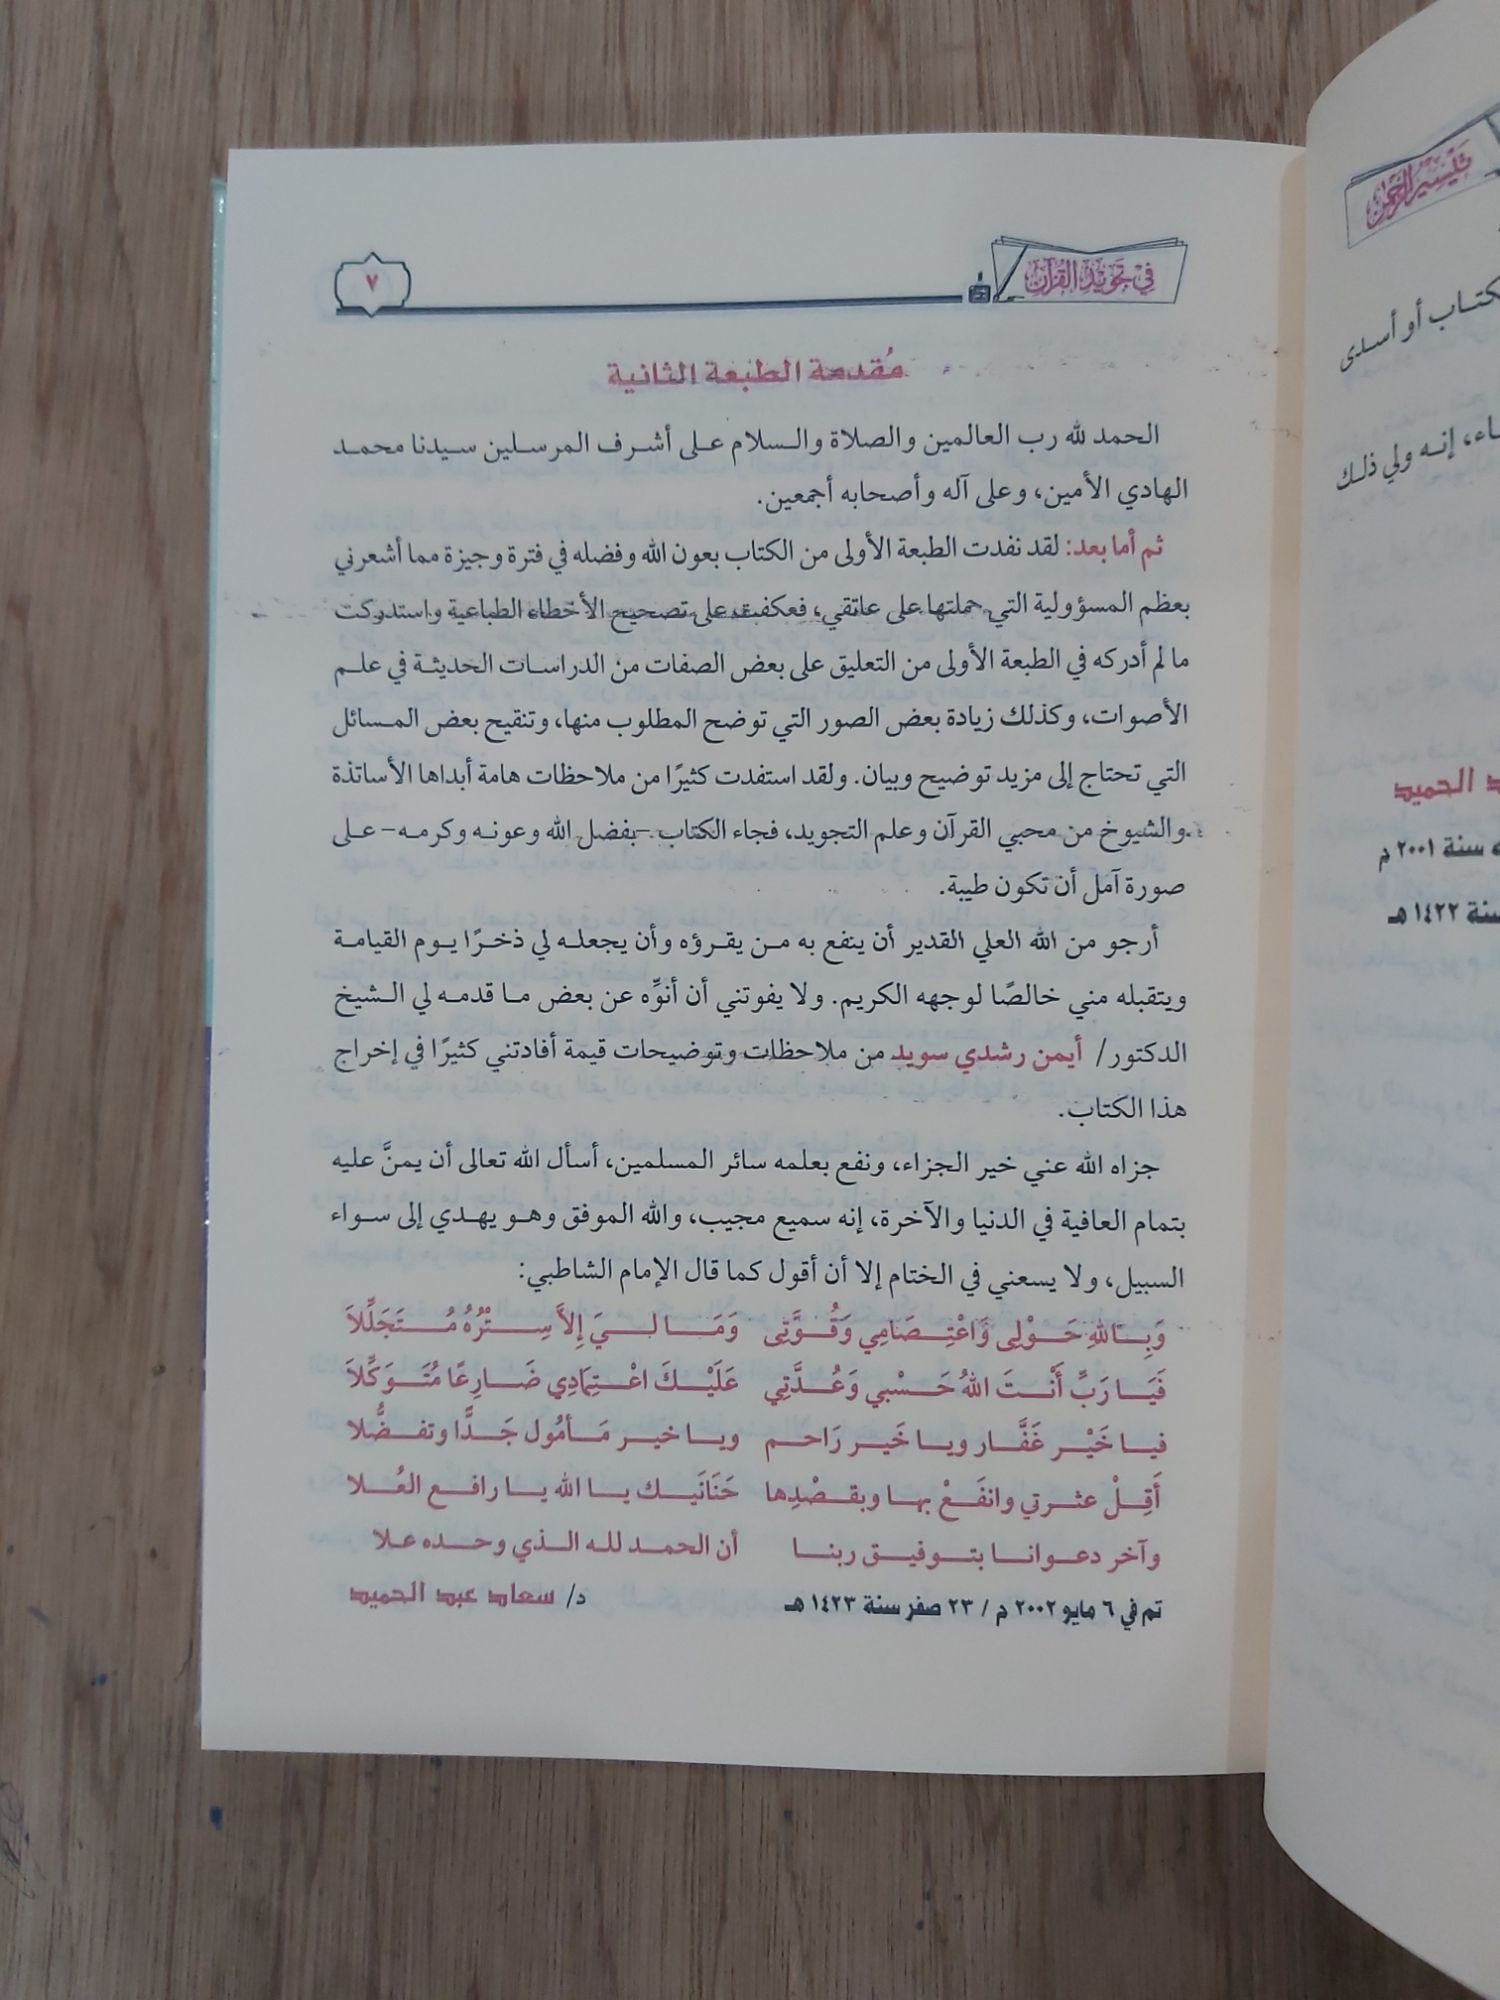 في تجويد القرآن
٧
مُقدمة الطبعة الثانية
الحمد لله رب العالمين والصلاة والسلام على أشرف المرسلين سيدنا محمد
الهادي الأمين، وعلى آله وأصحابه أجمعين.
ثم أما بعد: لقد نفدت الطبعة الأولى من الكتاب بعون الله وفضله في فترة وجيزة مما أشعرني
بعظم المسؤولية التي حملتها على عاتقي، فعكفت على تصحيح الأخطاء الطباعية واستدركت
ما لم أدركه في الطبعة الأولى من التعليق على بعض الصفات من الدراسات الحديثة في علم
الأصوات، وكذلك زيادة بعض الصور التي توضح المطلوب منها، وتنقيح بعض المسائل
التي تحتاج إلى مزيد توضيح وبيان. ولقد استفدت كثيرًا من ملاحظات هامة أبداها الأساتذة
والشيوخ من محبي القرآن وعلم التجويد، فجاء الكتاب -بفضل الله وعونه وكرمه- على
صورة آمل أن تكون طيبة.
أرجو من الله العلي القدير أن ينفع به من يقرؤه وأن يجعله لي ذخرًا يوم القيامة
ويتقبله مني خالصًا لوجهه الكريم. ولا يفوتني أن أنوِّه عن بعض ما قدمه لي الشيخ
الدكتور/ أيمن رشدي سويد من ملاحظات وتوضيحات قيمة أفادتني كثيرًا في إخراج
هذا الكتاب.
جزاه الله عني خير الجزاء، ونفع بعلمه سائر المسلمين، أسأل الله تعالى أن يمنَّ عليه
بتمام العافية في الدنيا والآخرة، إنه سميع مجيب، والله الموفق وهو يهدي إلى سواء
السبيل، ولا يسعني في الختام إلا أن أقول كما قال الإمام الشاطبي:
وَبِاللهِ حَوْلِى وَاعْتِصَامِي وَقُوَّتِى وَمَا لِيَ إِلاَّ سِتْرُهُ مُتَجَلِّلاَ
فَيَا رَبِّ أَنْتَ اللهُ حَسْبِي وَعُدَّتِي عَلَيْكَ اعْتِمَادِي ضَارِعًا مُتَوَكِّلاَ
فيا خَيْر غَفَّار ويا خَير رَاحم ويا خير مَأمُول جَدًّا وتفضُّلا
أَقِلْ عثرتي وانفَعْ بها وبقصْدِها حَنَانَيك يا الله يا رافع العُلا
وآخر دعوانا بتوفيق ربنا أن الحمد لله الذي وحده علا
تم في ٦ مايو ٢٠٠٢ م / ٢٣ صفر سنة ١٤٢٣ هـ د/ سعاد عبد الحميد
تيسير الرحمن
أو أسدى
إنه ولي ذلك
الحميد
سنة ٢٠٠١ م
سنة ١٤٢٢ هـ